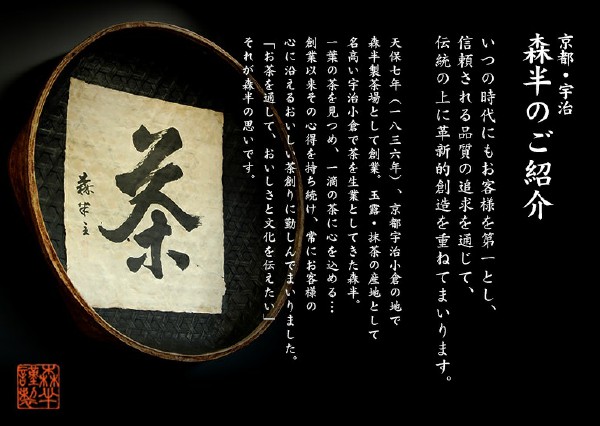 京都・宇治
森半のご紹介
いつの時代にもお客様を第一とし、
信頼される品質の追求を通じて、
伝統の上に革新的創造を重ねてまいります。
天保七年（一八三六年）、京都宇治小倉の地で
森半製茶場として創業。玉露・抹茶の産地として
名高い宇治小倉で茶を生業としてきた森半。
一葉の茶を見つめ、一滴の茶に心を込める…
創業以来その心得を持ち続け、常にお客様の
心に沿えるおいしい茶創りに勤しんでまいりました。
「お茶を通して、おいしさと文化を伝えたい」
それが森半の思いです。
茶
森半主
森半
謹製